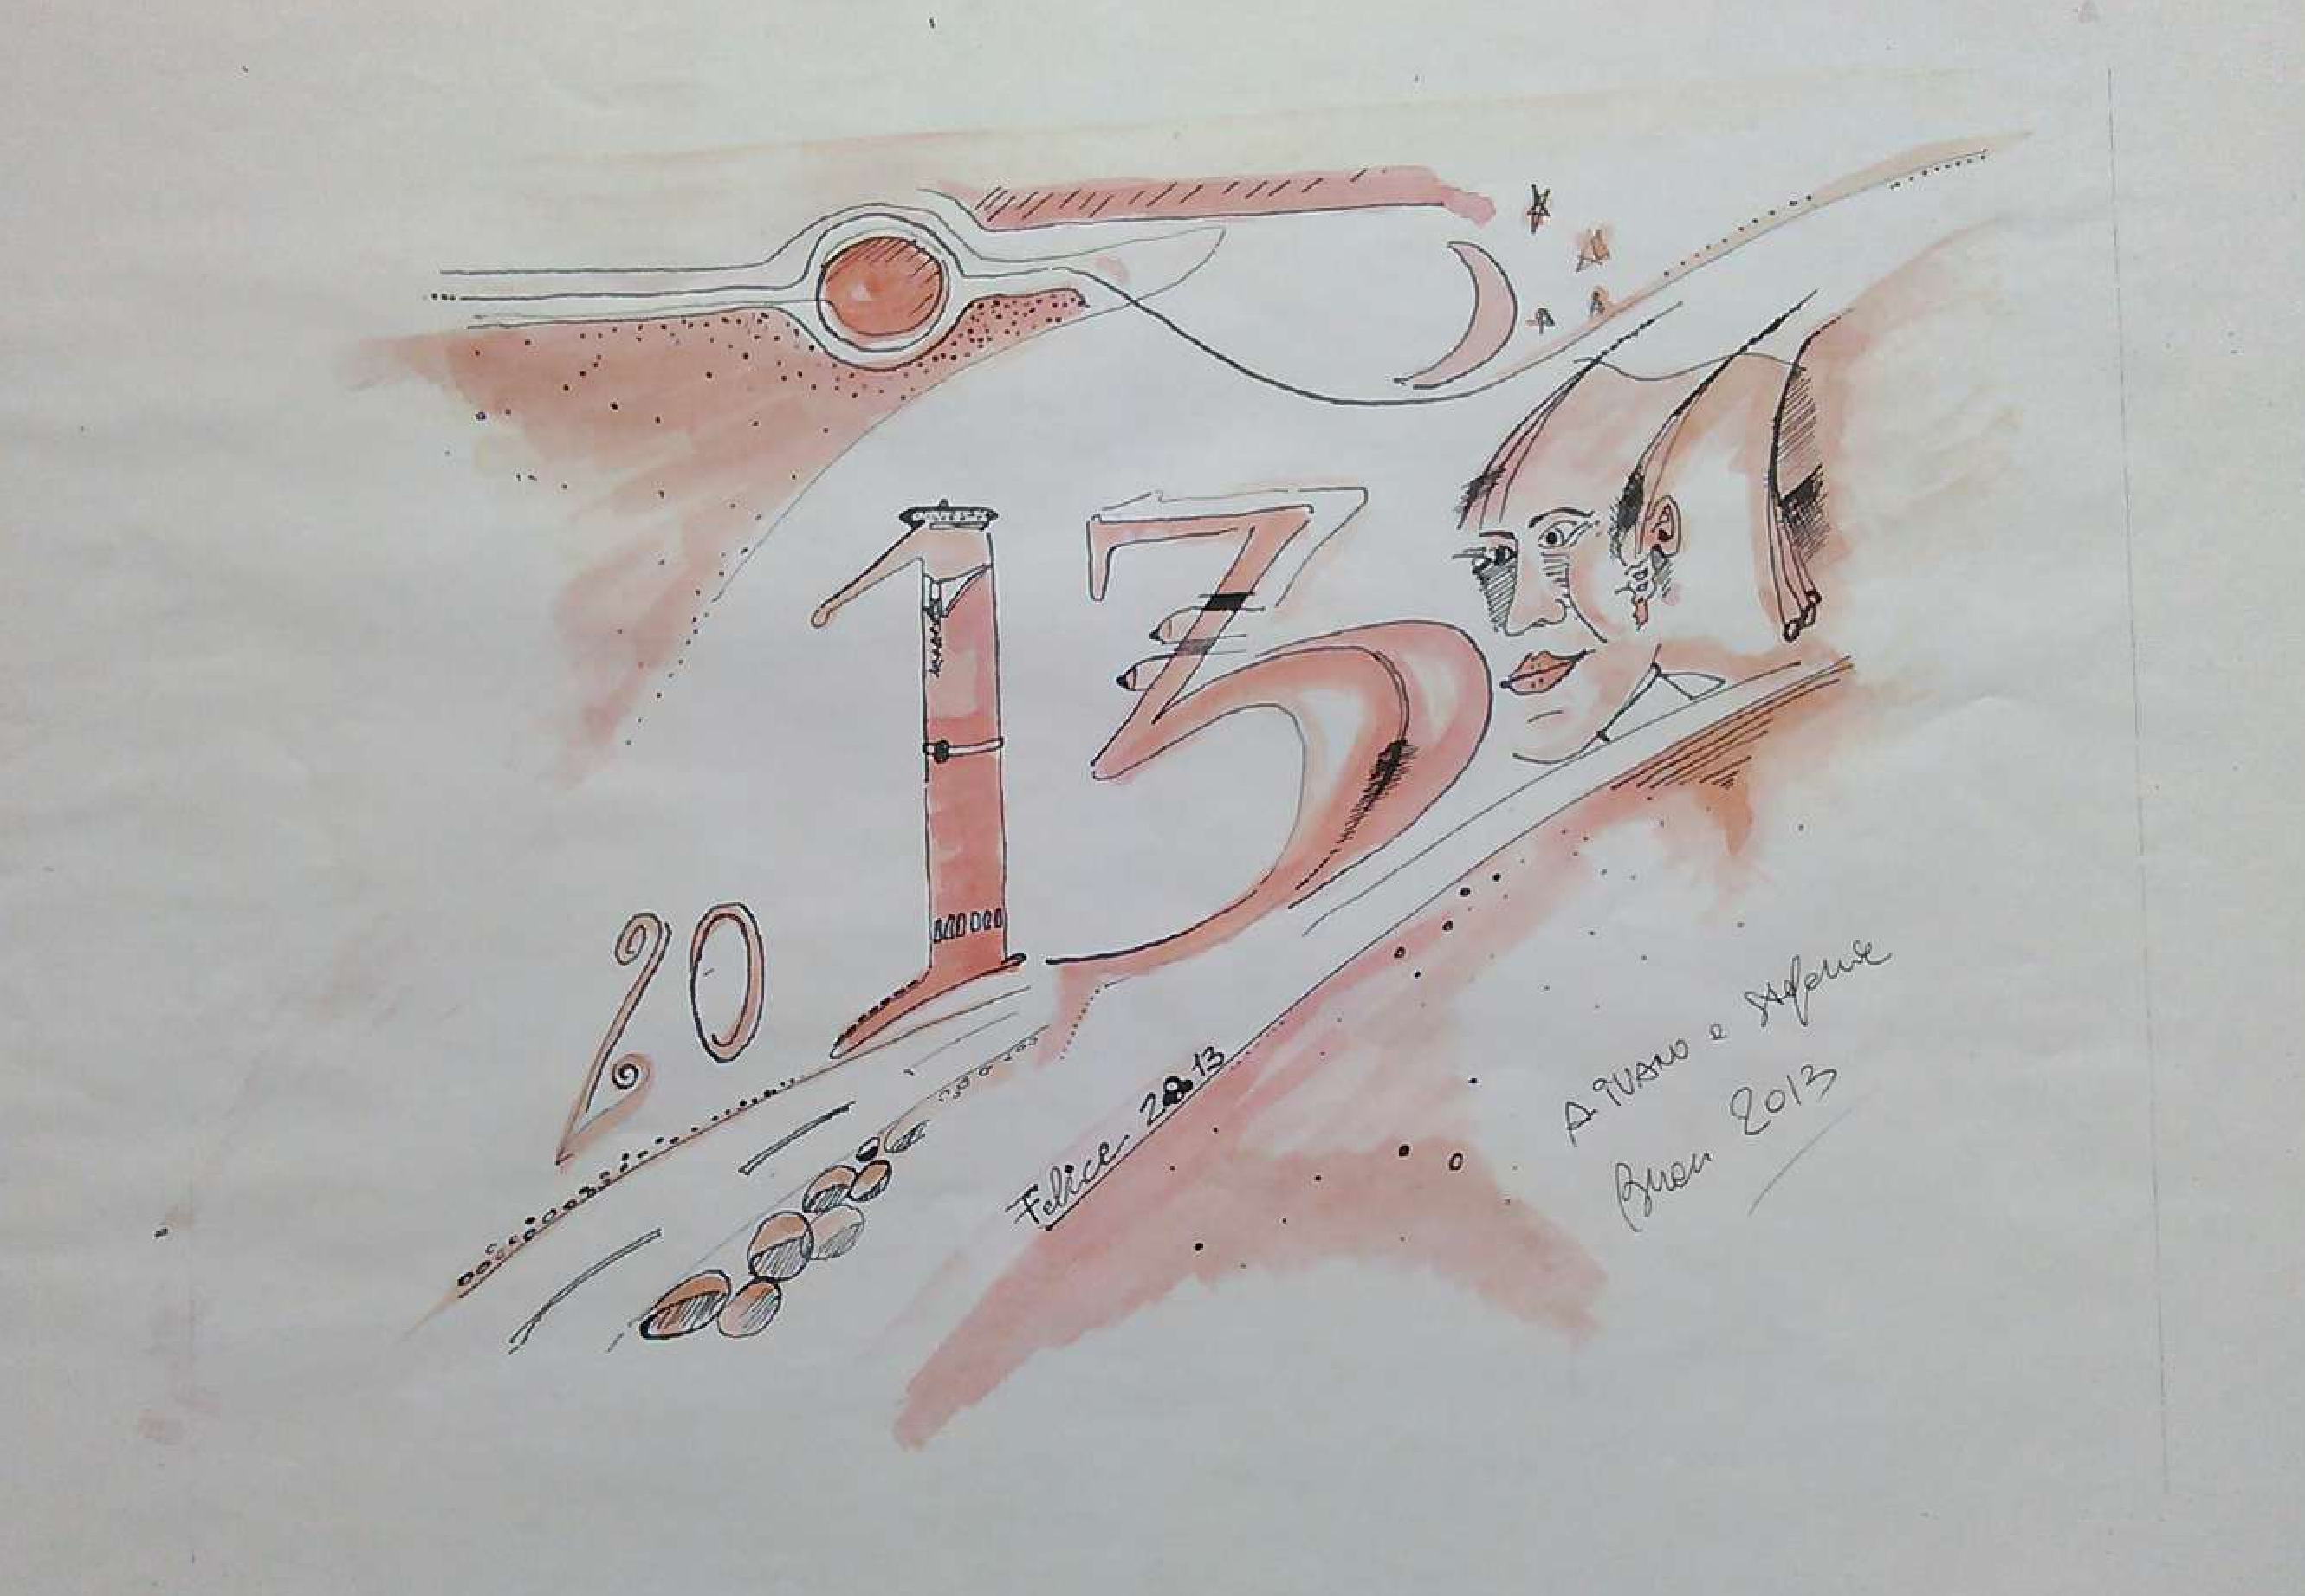 2013
Felice 2013
A IVANO e Stefania
Buon 2013